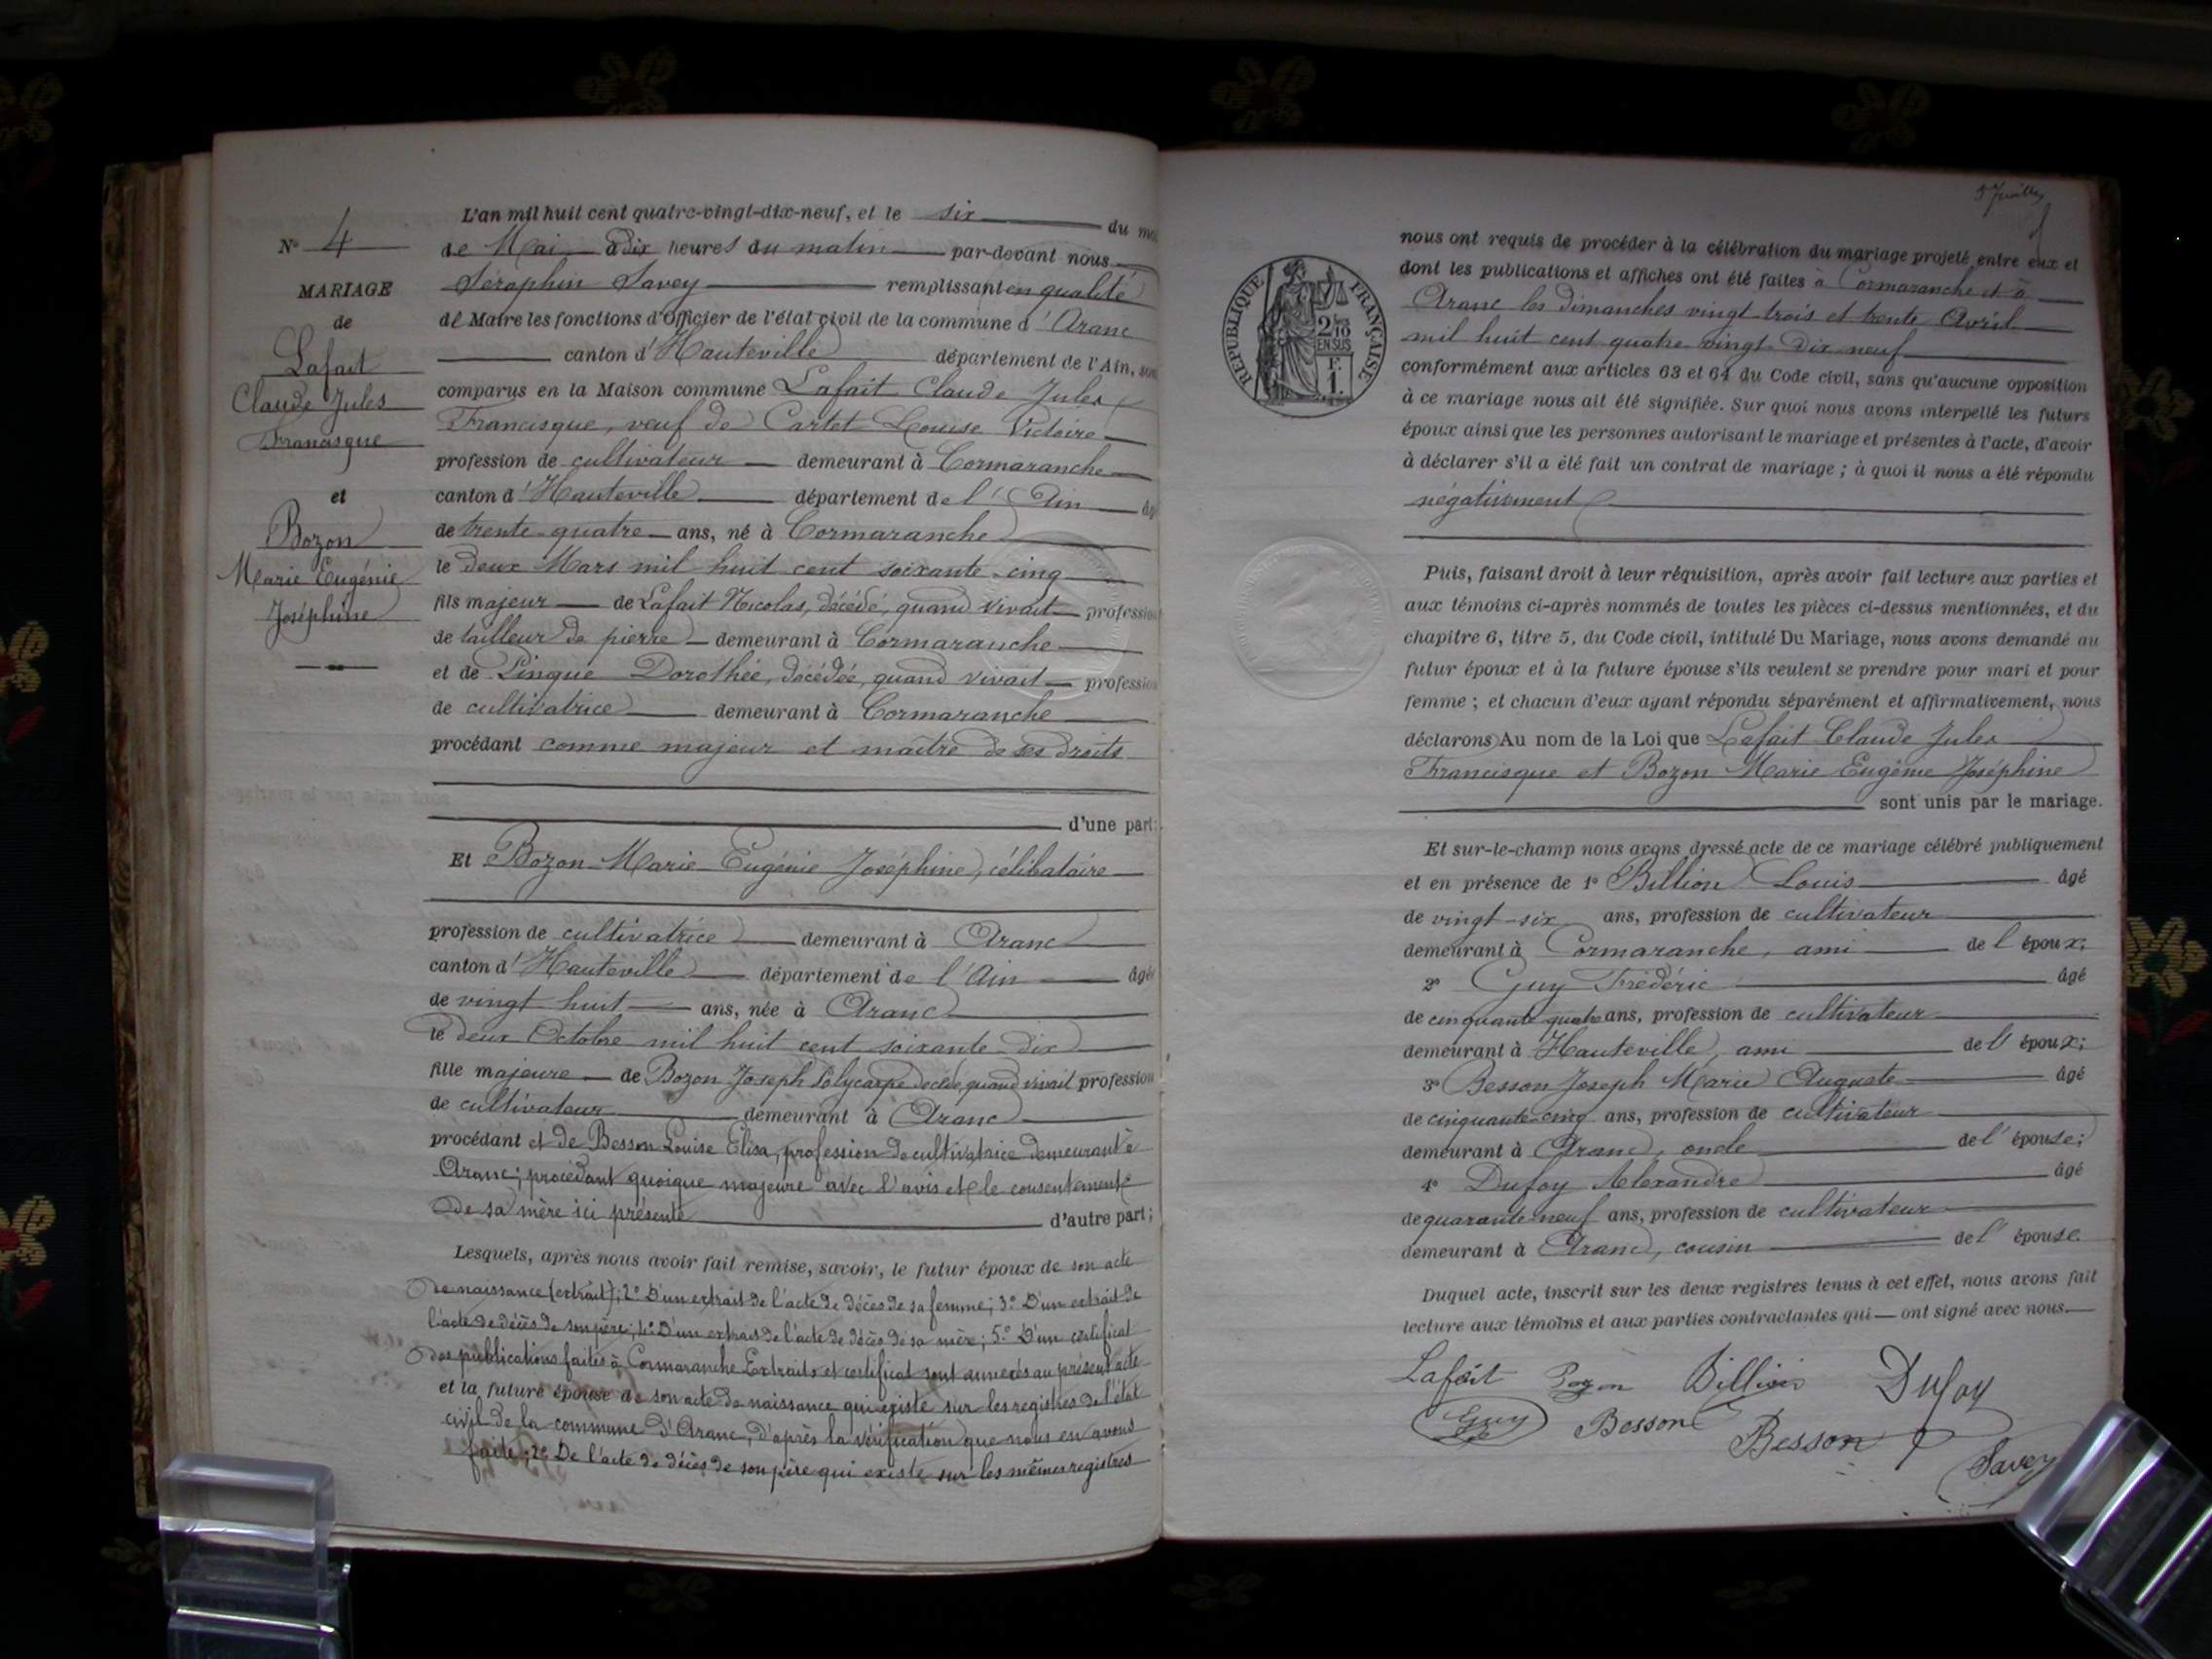 N° 4
MARIAGE
de
Lafait
Claude Jules
Francisque
et
Bozon
Marie Eugénie
Joséphine
L'an mil huit cent quatre-vingt-dix-neuf, et le six du
de Mai à dix heures du matin par-devant nous
Séraphin Savey remplissant en qualité
de Maire les fonctions d'Officier de l'état civil de la commune d'Aranc
canton d'Hauteville département de l'Ain,
comparus en la Maison commune Lafait Claude Jules
Francisque, veuf de Cartet Louise Victoire
profession de cultivateur demeurant à Cormaranche
canton d'Hauteville département de l'Ain
de trente-quatre ans, né à Cormaranche
le deux Mars mil huit cent soixante-cinq
fils majeur de Lafait Nicolas, décédé, quand vivait profession
de tailleur de pierre demeurant à Cormaranche
et de Pingue Dorothée, décédée, quand vivait profession
de cultivatrice demeurant à Cormaranche
procédant comme majeur et maître de ses droits
d'une part;
Et Bozon Marie Eugénie Joséphine, célibataire
profession de cultivatrice demeurant à Aranc
canton d'Hauteville département de l'Ain âgée
de vingt huit ans, née à Aranc
le deux Octobre mil huit cent soixante-dix
fille majeure de Bozon Joseph Polycarpe décédé, quand vivait profession
de cultivateur demeurant à Aranc
procédant et de Besson Louise Elisa, profession de cultivatrice demeurant à
Aranc; procédant quoique majeure avec l'avis et le consentement
de sa mère ici présente d'autre part;
Lesquels, après nous avoir fait remise, savoir, le futur époux de son acte
de naissance (extrait); 2° D'un extrait de l'acte de décès de sa femme; 3° D'un extrait de
l'acte de décès de son père; 4° D'un extrait de l'acte de décès de sa mère; 5° D'un certificat
des publications faites à Cormaranche Extraits et certificat sont annexés au présent acte
et la future épouse de son acte de naissance qui existe sur les registres de l'état
civil de la commune d'Aranc, d'après la vérification que nous en avons
faite; 2° De l'acte de décès de son père qui existe sur les mêmes registres
RÉPUBLIQUE FRANÇAISE
2/10
EN SUS
F.
1.
nous ont requis de procéder à la célébration du mariage projeté entre eux et
dont les publications et affiches ont été faites à Cormaranche et à
Aranc les dimanches vingt-trois et trente Avril
mil huit cent quatre vingt-dix neuf
conformément aux articles 63 et 64 du Code civil, sans qu'aucune opposition
à ce mariage nous ait été signifiée. Sur quoi nous avons interpellé les futurs
époux ainsi que les personnes autorisant le mariage et présentes à l'acte, d'avoir
à déclarer s'il a été fait un contrat de mariage; à quoi il nous a été répondu
négativement
Puis, faisant droit à leur réquisition, après avoir fait lecture aux parties et
aux témoins ci-après nommés de toutes les pièces ci-dessus mentionnées, et du
chapitre 6, titre 5, du Code civil, intitulé Du Mariage, nous avons demandé au
futur époux et à la future épouse s'ils veulent se prendre pour mari et pour
femme; et chacun d'eux ayant répondu séparément et affirmativement, nous
déclarons Au nom de la Loi que Lafait Claude Jules
Francisque et Bozon Marie Eugénie Joséphine
sont unis par le mariage.
Et sur-le-champ nous avons dressé acte de ce mariage célébré publiquement
et en présence de 1° Billion Louis âgé
de vingt-six ans, profession de cultivateur
demeurant à Cormaranche, ami de l'époux;
2° Guy Frédéric âgé
de cinquante quatre ans, profession de cultivateur
demeurant à Hauteville, ami de l'époux;
3° Besson Joseph Marie Auguste âgé
de cinquante-cinq ans, profession de cultivateur
demeurant à Aranc, oncle de l'épouse;
4° Dufoy Alexandre âgé
de quarante-neuf ans, profession de cultivateur
demeurant à Aranc, cousin de l'épouse.
Duquel acte, inscrit sur les deux registres tenus à cet effet, nous avons fait
lecture aux témoins et aux parties contractantes qui ont signé avec nous.
Lafait Bozon Billion Dufoy
Guy Besson Besson
Savey